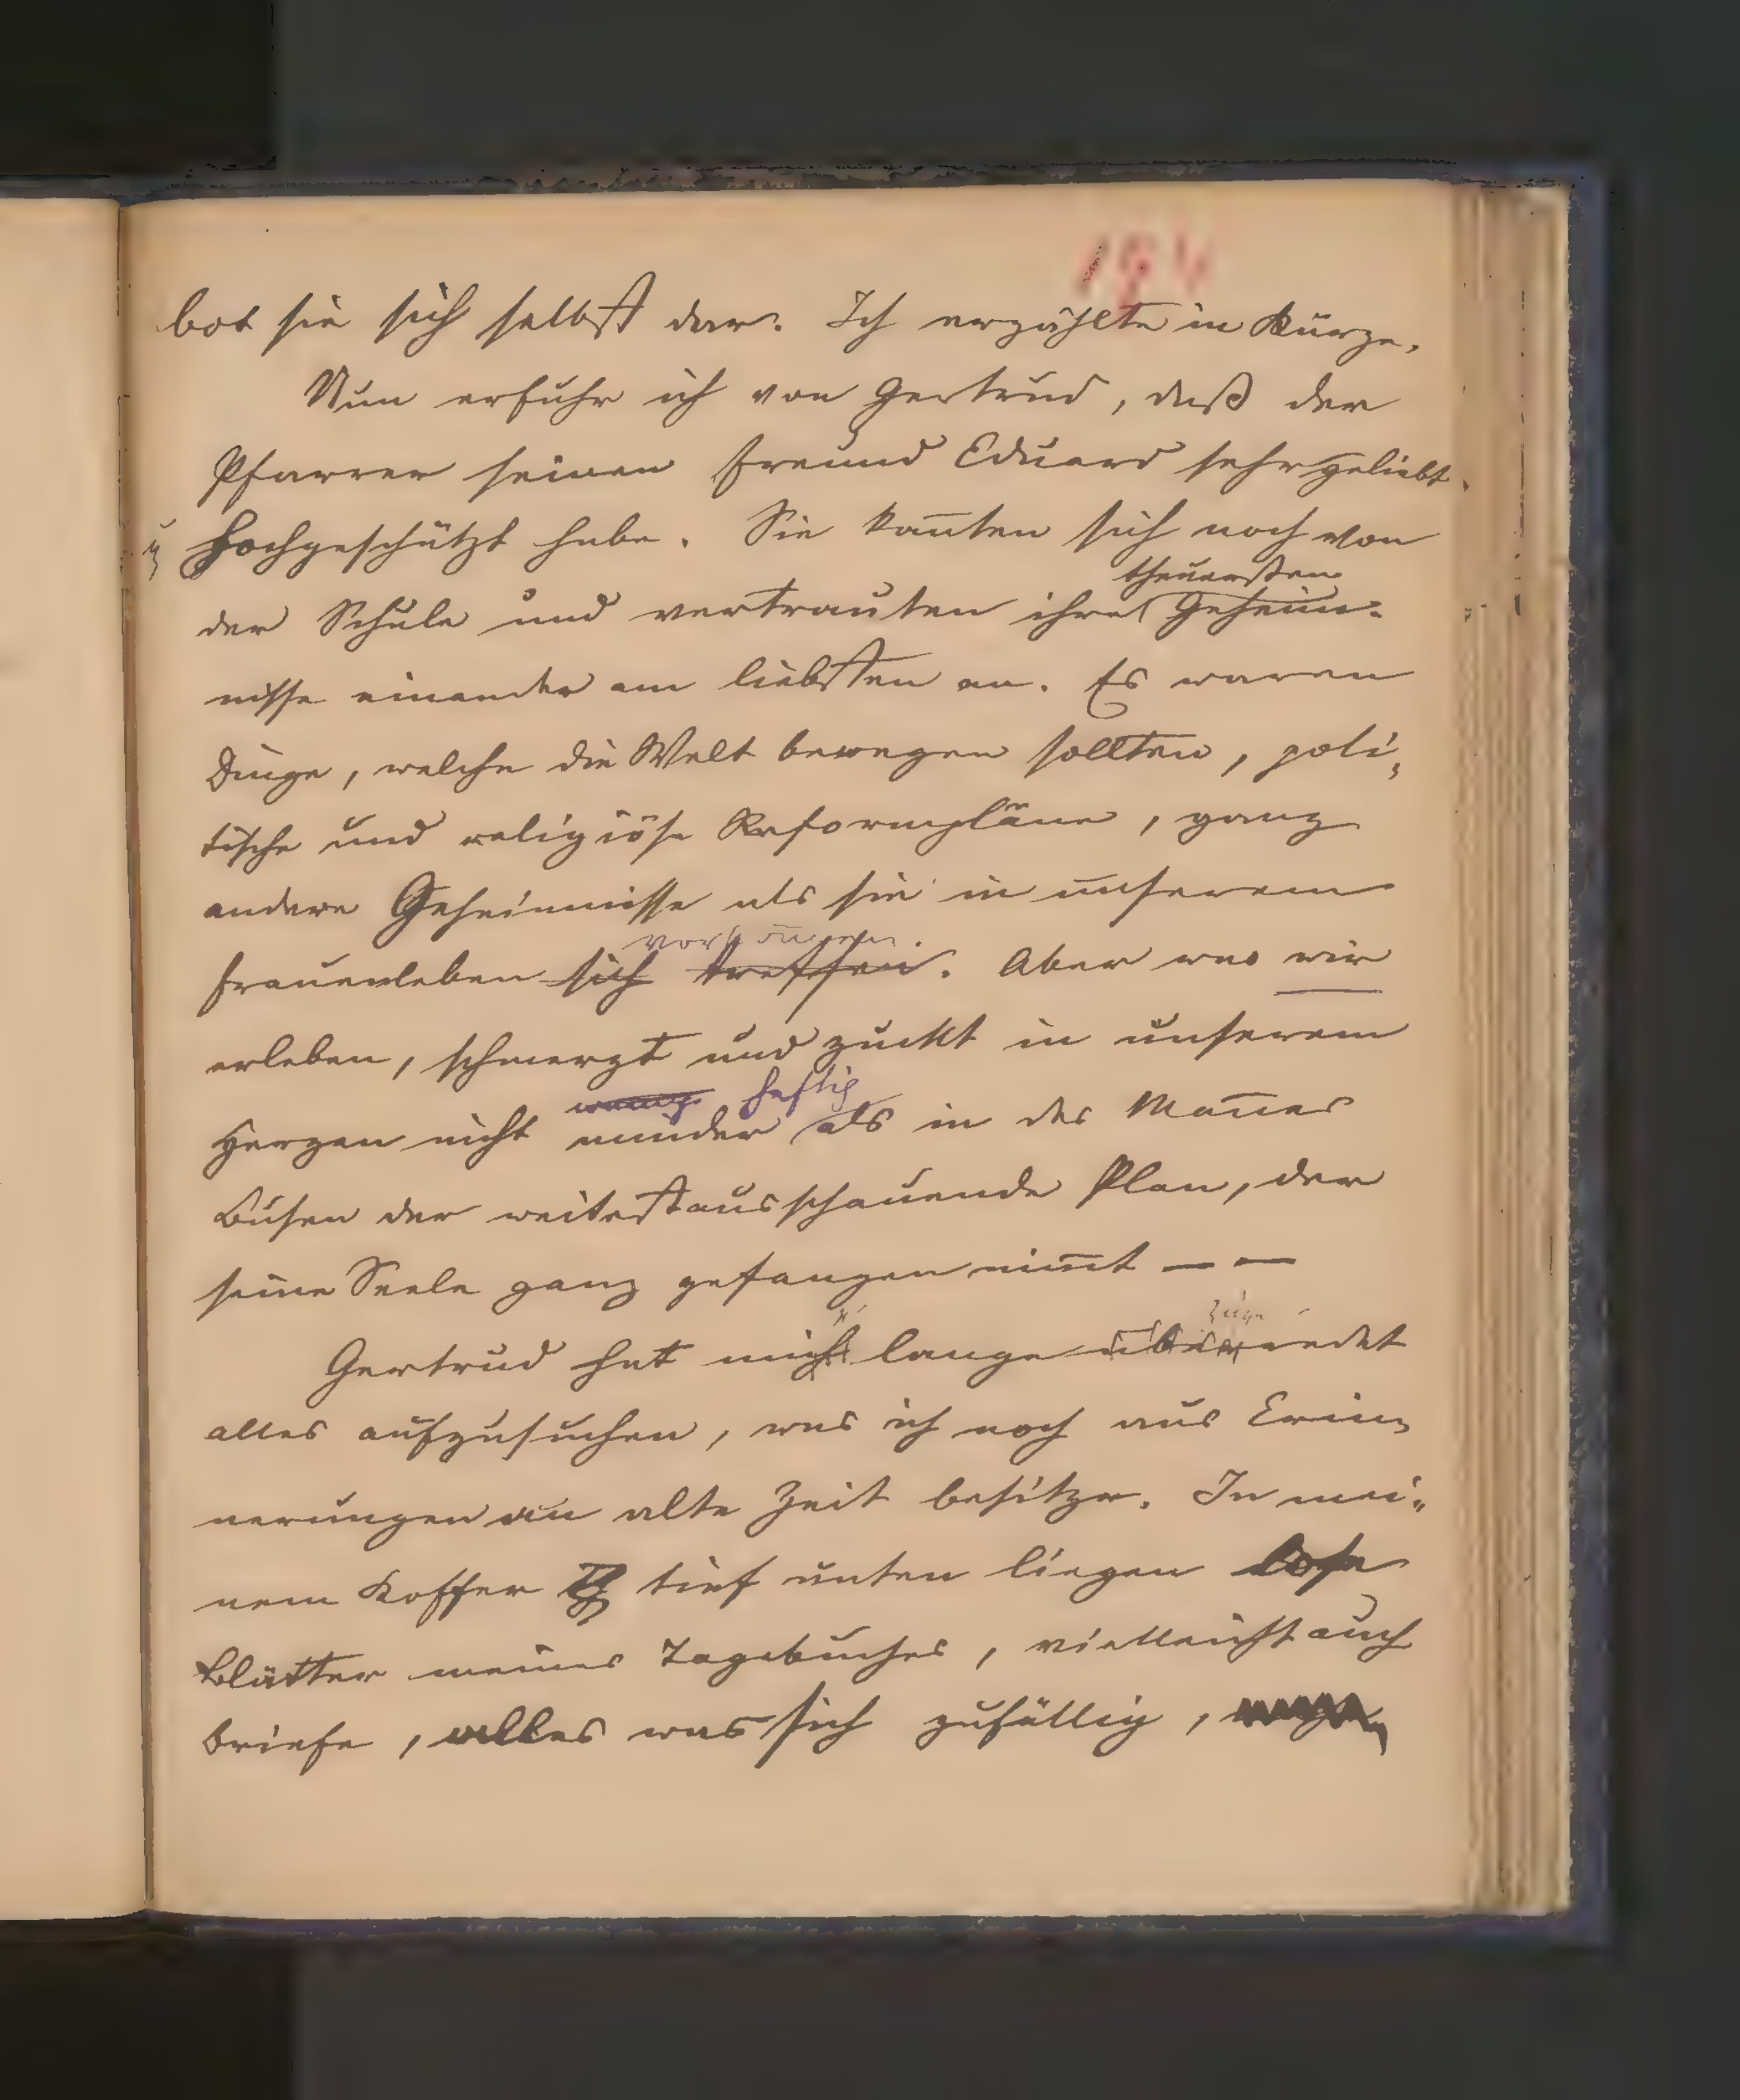 194
bot sie sich selbst dar. Ich erzählte in Kürze.
Nun erfuhr ich von Gertrud, daß der
Pfarrer seinen Freund Eduard sehr geliebt
u hochgeschützt habe. Sie kan̄ten sich noch von
theuersten
der Schule und vertrauten ihre Geheim-
nisse einander am liebsten an. Es waren
Dinge, welche die Welt bewegen sollten, poli-
tische und religiöse Reformpläne, ganz
andere Geheimnisse als sie in unserem
vorkommen
Frauenleben sich treffen. Aber was wir
erleben, schmerzt und zuckt in unserem
wenig heftig
Herzen nicht minder als in des Man̄es
Busen der weitestausschauende Plan, der
seine Seele ganz gefangen nim̄t — —
Gertrud hat mich lange überredet
alles aufzusuchen, was ich noch aus Erin-
nerungen an alte Zeit besitze. In mei-
nem Koffer tief unten liegen lose
Blätter meines Tagebuches, vielleicht auch
Briefe, alles was sich zufällig,